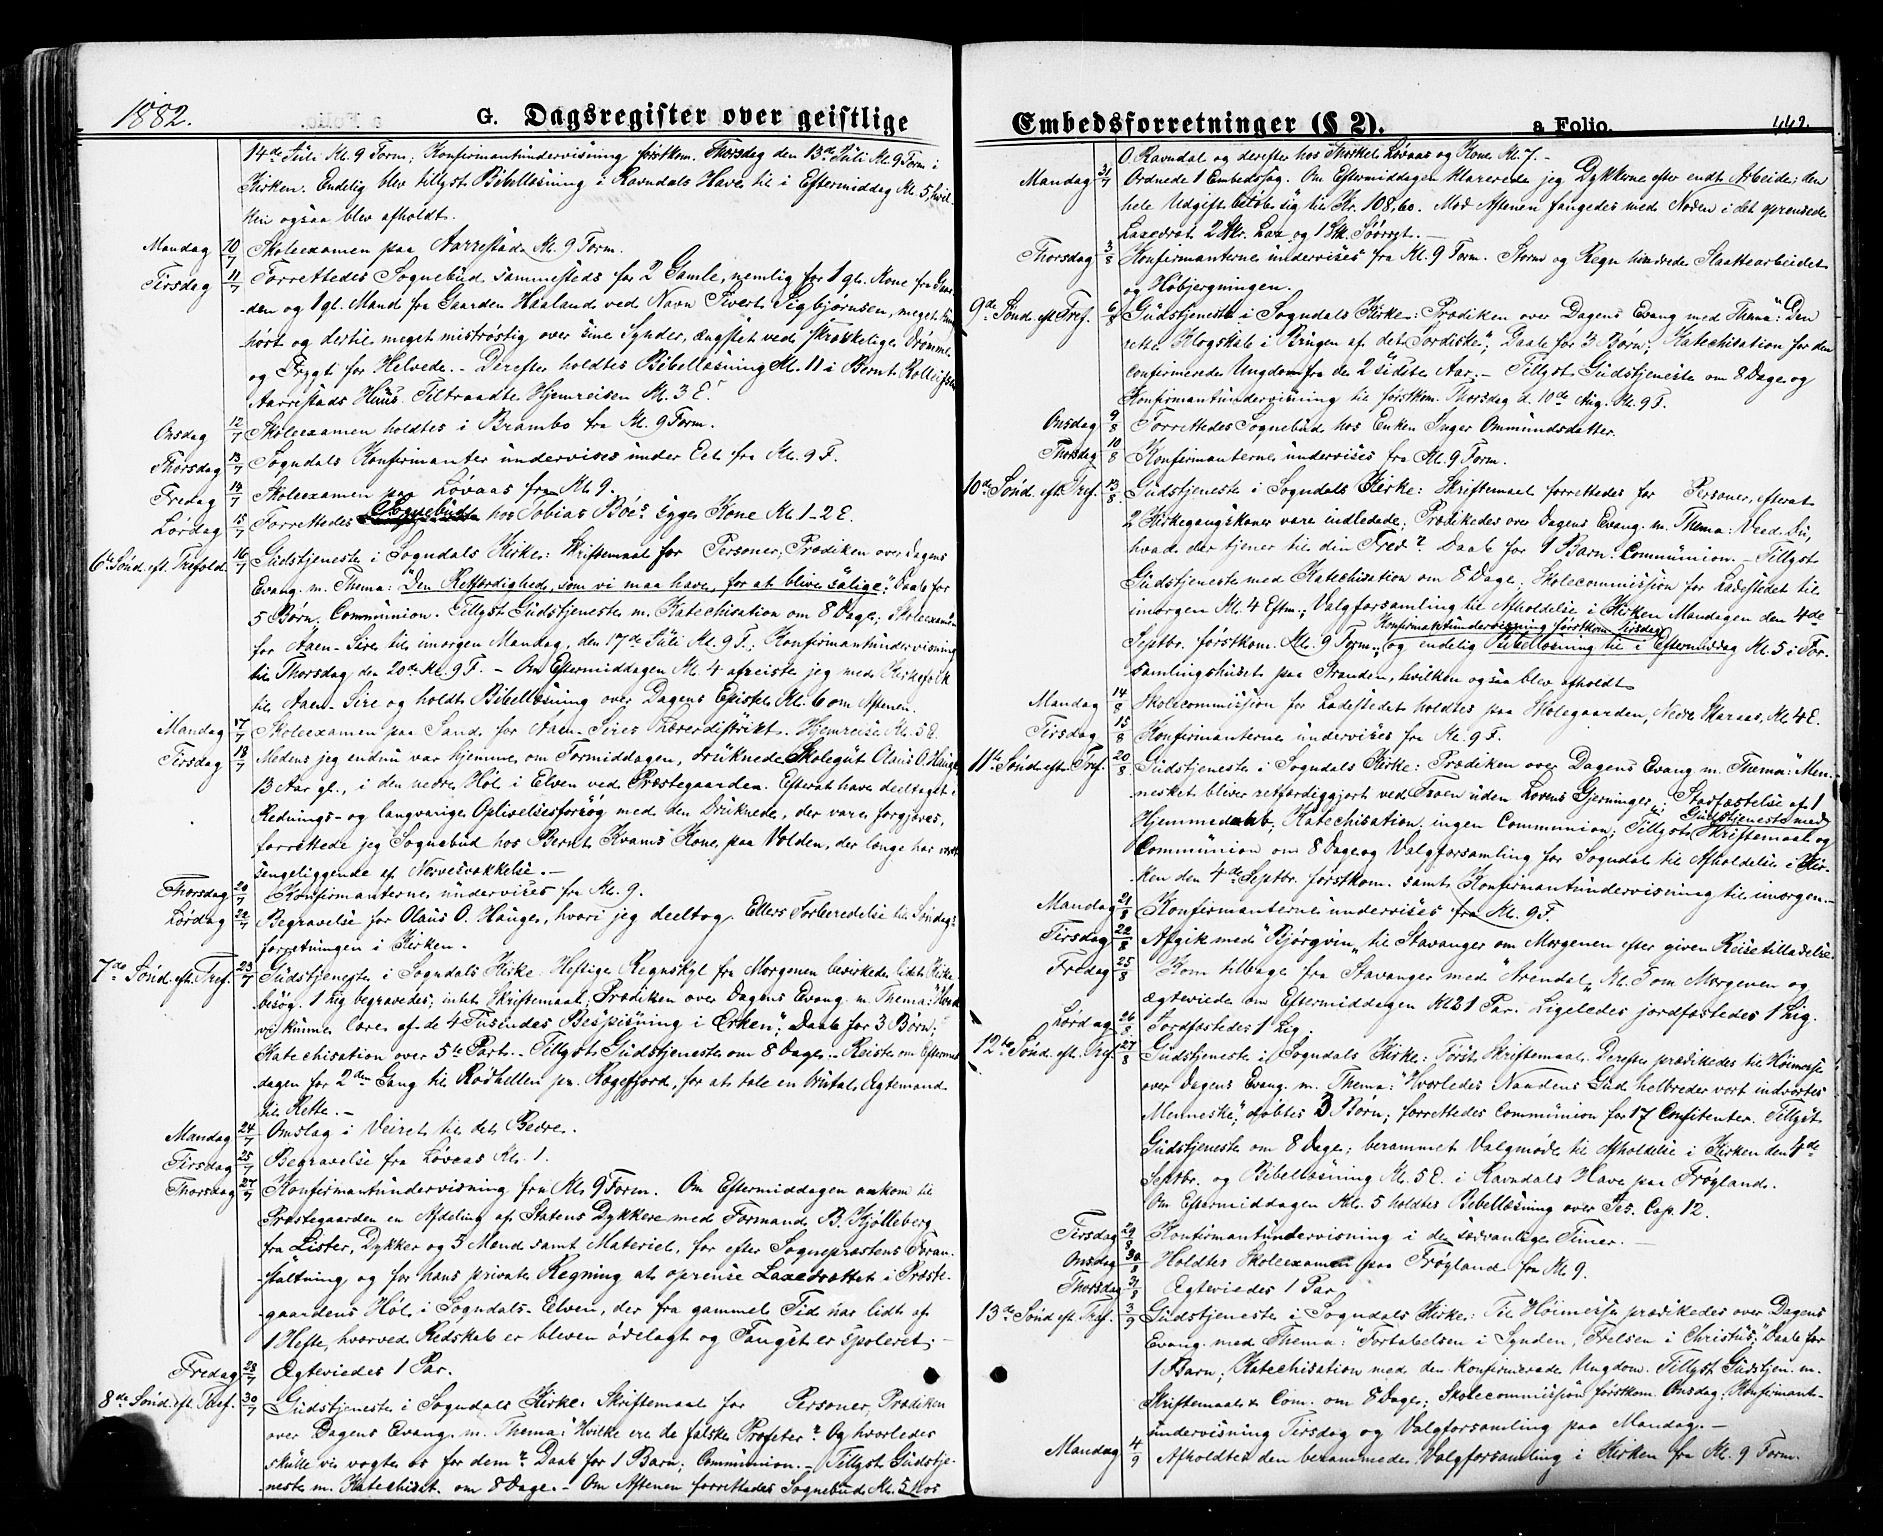 1882.
G. Dagsregister over geistlige
14de Juli Kl. 9 Form; Konfirmantundervisning førstkom. Thorsdag den 13de Juli Kl. 9 Form i
Kirken. Endelig blev tillyst Bibellæsning i Ravndals Have til i Eftermiddag Kl. 5, hvil-
ken ogsaa blev afholdt.
Mandag 10/7 Skoleexamen paa Aarrestad Kl. 9 Form.
Tirsdag 11/7 Forrettedes Sognebud sammesteds for 2 Gamle, nemlig for 1 gl. Kone fra Gaar-
den og 1 gl. Mand fra Gaarden Haaland ved Navn Sivert Sigbjørnsen, meget tung-
hørt og dertil meget mistrøstig over sine Synder, ængstet ved skrækkelige Drømme
og Frygt for Helvede. - Derefter holdtes Bibellæsning Kl. 11 i Bernt Kolleifsen
Aarrestads Huus. Tiltraadte Hjemreisen Kl. 3 E.
Onsdag 12/7 Skoleexamen holdtes i Brambo fra Kl. 9 Form.
Thorsdag 13/7 Sogndals Konfirmanter undervises under Eet fra Kl. 9 F.
Fredag 14/7 Skoleexamen paa Løvaas fra Kl. 9.
Lørdag 15/7 Forrettedes Sognebud hos Tobias Böe's Egges Kone Kl. 1-2 E.
6te Sönd. eft. Trefold. 16/7 Gudstjeneste i Sogndals Kirke: Skriftemaal for Personer; Prædiken over Dagens
Evang. m. Thema: "Den Retfærdighed, som vi maa have, for at blive salige"; Daab for
5 Børn. Communion. Tillyst Gudstjeneste m. Katechisation om 8 Dage; Skoleexamen
for Aaen-Sire til imorgen Mandag, den 17de Juli Kl. 9 F.; Konfirmantundervisning
til Thorsdag den 20de Kl. 9 F. - Om Eftermiddagen Kl. 4 afreiste jeg med Kirkefolk
til Aaen-Sire og holdt Bibellæsning over Dagens Epistel Kl. 6 om Aftenen.
Mandag 17/7 Skoleexamen paa Sand for Aaen-Sires Skoledistrikt. Hjemreise Kl. 5 E.
Tirsdag 18/7 Medens jeg endnu var hjemme, om Formiddagen, druknede Skolegut Olaus O. Hauge,
13 Aar gl., i den nedre Høl i Elven ved Præstegaarden. Efterat have deeltaget i
Rednings- og langvarige Oplivelsesforsøg med den Druknede, der vare forgjæves,
forrettede jeg Sognebud hos Bernt Kvams Kone, paa Volden, der længe har vært
sengeliggende af Nervesvækkelse. -
Thorsdag 20/7 Konfirmanterne undervises fra Kl. 9.
Lørdag 22/7 Begravelse for Olaus O. Hauge, hvori jeg deeltog. Ellers Forberedelse til Søndags-
forretningen i Kirken.
7de Sönd. eft. Tref. 23/7 Gudstjeneste i Sogndals Kirke: Heftige Regnskyl fra Morgenen bevirkede lidet Kirke-
besøg. 1 Lig begravedes; intet Skriftemaal; Prædiken over Dagens Evang. m. Thema: "Hvad
vi kunne lære af de 4 Tusindes Bespisning i Ørken"; Daab for 3 Børn;
Katechisation over 5te Part. - Tillyst Gudstjeneste om 8 Dage. - Reiste om Eftermid-
dagen for 2den Gang til Rødhellen pr. Rægefjord, for at tale en brutal Ægtemand
til Rette. -
Mandag 24/7 Omslag i Veiret til det Bedre.
Tirsdag 25/7 Begravelse fra Løvaas Kl. 1.
Thorsdag 27/7 Konfirmantundervisning fra Kl. 9 Form. Om Eftermiddagen ankom til
Præstegaarden en Afdeling af Statens Dykkere med Formand B. Kjølleberg
fra Lister, Dykker og 5 Mand samt Materiel, for efter Sognepræstens Foran-
staltning og for hans private Regning at oprense Laxedrættet i Præste-
gaardens Høl i Sogndals-Elven, der fra gammel Tid har lidt af
1 Hefte, hvorved Redskab er bleven ødelagt og Fangst er spoleret. -
Fredag 28/7 Ægteviedes 1 Par.
8de Sönd. eft. Tref. 30/7 Gudstjeneste i Sogndals Kirke: Skriftemaal for Personer; Prædiken
over Dagens Evang. m. Thema: Hvilke ere de falske Profeter? Og hvorledes
skulle vi vogte os for dem? Daab for 1 Barn; Communion. - Tillyst Gudstje-
neste m. Katechisat. om 8 Dage. - Om Aftenen forrettedes Sognebud Kl. 5 hos
Embedsforretninger (§ 2).
a Folio.
442.
O. Ravndal og derefter hos Thorkel Løvaas og Kone Kl. 7. -
Mandag 31/7 Ordnede 1 Embedssag. Om Eftermiddagen klarerede jeg Dykkerne efter endt Arbeide; den
hele Udgift beløb sig til Kr. 108,60. Mod Aftenen fangedes med Noden i det oprensede
Laxedræt 2 Stkr. Lax og 1 Stk. Söörret. -
Thorsdag 3/8 Konfirmanterne undervises fra Kl. 9 Form. Storm og Regn hindrede Slaattearbeidet
og Höbjergningen.
9de Sönd. eft. Tref. 6/8 Gudstjeneste i Sogndals Kirke: Prædiken over Dagens Evang. med Thema: "Den
rette Klogskab i Brugen af det Jordiske"; Daab for 3 Børn; Katechisation for den
confirmerede Ungdom fra de 2 sidste Aar. - Tillyst Gudstjeneste om 8 Dage og
Konfirmantundervisning til førstkom. Thorsdag d. 10de Aug. Kl. 9 F.
Onsdag 9/8 Forrettedes Sognebud hos Enken Inger Ommundsdatter.
Thorsdag 10/8 Konfirmanterne undervises fra Kl. 9 Form.
10de Sönd. eft. Tref. 13/8 Gudstjeneste i Sogndals Kirke: Skriftemaal forrettedes for Personer, efterat
2 Kirkegangskoner vare indledede; Prædikedes over Dagens Evang. m. Thema: Veed Du,
hvad der tjener til din Fred? Daab for 1 Barn. Communion. - Tillyst
Gudstjeneste med Katechisation om 8 Dage; Skolecommission for Ladestedet til
imorgen Kl. 4 Eftm.; Valgforsamling til Afholdelse i Kirken Mandagen den 4de
Konfirmantundervisning førstkom. Tirsdag
Septbr. førstkom. Kl. 9 Form.; og endelig Bibellæsning til i Eftermiddag Kl. 5 i For-
samlingshuset paa Stranden, hvilken ogsaa blev afholdt.
Mandag 14/8 Skolecommission for Ladestedet holdtes paa Skolegaarden, Nedre Skaraas, Kl. 4 E.
Tirsdag 15/8 Konfirmanterne undervises fra Kl. 9 F.
11te Sönd. eft. Tref. 20/8 Gudstjeneste i Sogndals Kirke: Prædiken over Dagens Evang. m. Thema: "Men-
nesket bliver retfærdiggjort ved Troen uden Lovens Gjerninger"; Stadfæstelse af 1
Gudstjeneste med
Hjemmedaab; Katechisation, ingen Communion; Tillyst Skriftemaal og
Communion om 8 Dage og Valgforsamling for Sogndal til Afholdelse i Kir-
ken den 4de Septbr. førstkom. samt Konfirmantundervisning til imorgen. -
Mandag 21/8 Konfirmanterne undervises fra Kl. 9 F.
Tirsdag 22/8 Afgik med "Bjørgvin" til Stavanger om Morgenen efter given Reisetilladelse.
Fredag 25/8 Kom tilbage fra Stavanger med "Arendal" Kl. 5 om Morgenen og
ægteviede om Eftermiddagen Kl. 3 1 Par. Ligeledes jordfæstedes 1 Lig.
Lørdag 26/8 Jordfæstedes 1 Lig.
12te Sönd. eft. Tref. 27/8 Gudstjeneste i Sogndals Kirke: Først Skriftemaal. Derefter prædikedes til Høimesse
over Dagens Evang. m. Thema: "Hvorledes Naadens Gud helbreder vort indvortes
Menneske"; døbtes 3 Børn; forrettedes Communion for 17 Confitenter. Tillyst
Gudstjeneste om 8 Dage; berammet Valgmøde til Afholdelse i Kirken den 4de
Septbr. og Bibellæsning Kl. 5 E. i Ravndals Have paa Frøyland.
Om Eftermiddagen Kl. 5 holdtes Bibellæsning over Jes. Cap. 12.
Tirsdag 29/8 Konfirmantundervisning i de sædvanlige Timer. -
Onsdag 30/8 Holdtes Skoleexamen paa Frøyland fra Kl. 9.
Thorsdag 31/8 Ægteviedes 1 Par.
13de Sönd. eft. Tref. 3/9 Gudstjeneste i Sogndals Kirke: Til Høimesse prædikedes over Dagens
Evang. med Thema: "Fortabelsen i Synden, Frelsen i Christus"; Daab for
1 Barn; Katechisation med den konfirmerede Ungdom. Tillyst Gudstjen. m.
Skriftemaal & Com. om 8 Dage; Skolecommission førstkom. Onsdag; Konfirmant-
undervisning Tirsdag og Valgforsamling paa Mandag. -
Mandag 4/9 Afholdtes den berammede Valgforsamling i Kirken fra Kl. 9 Form.